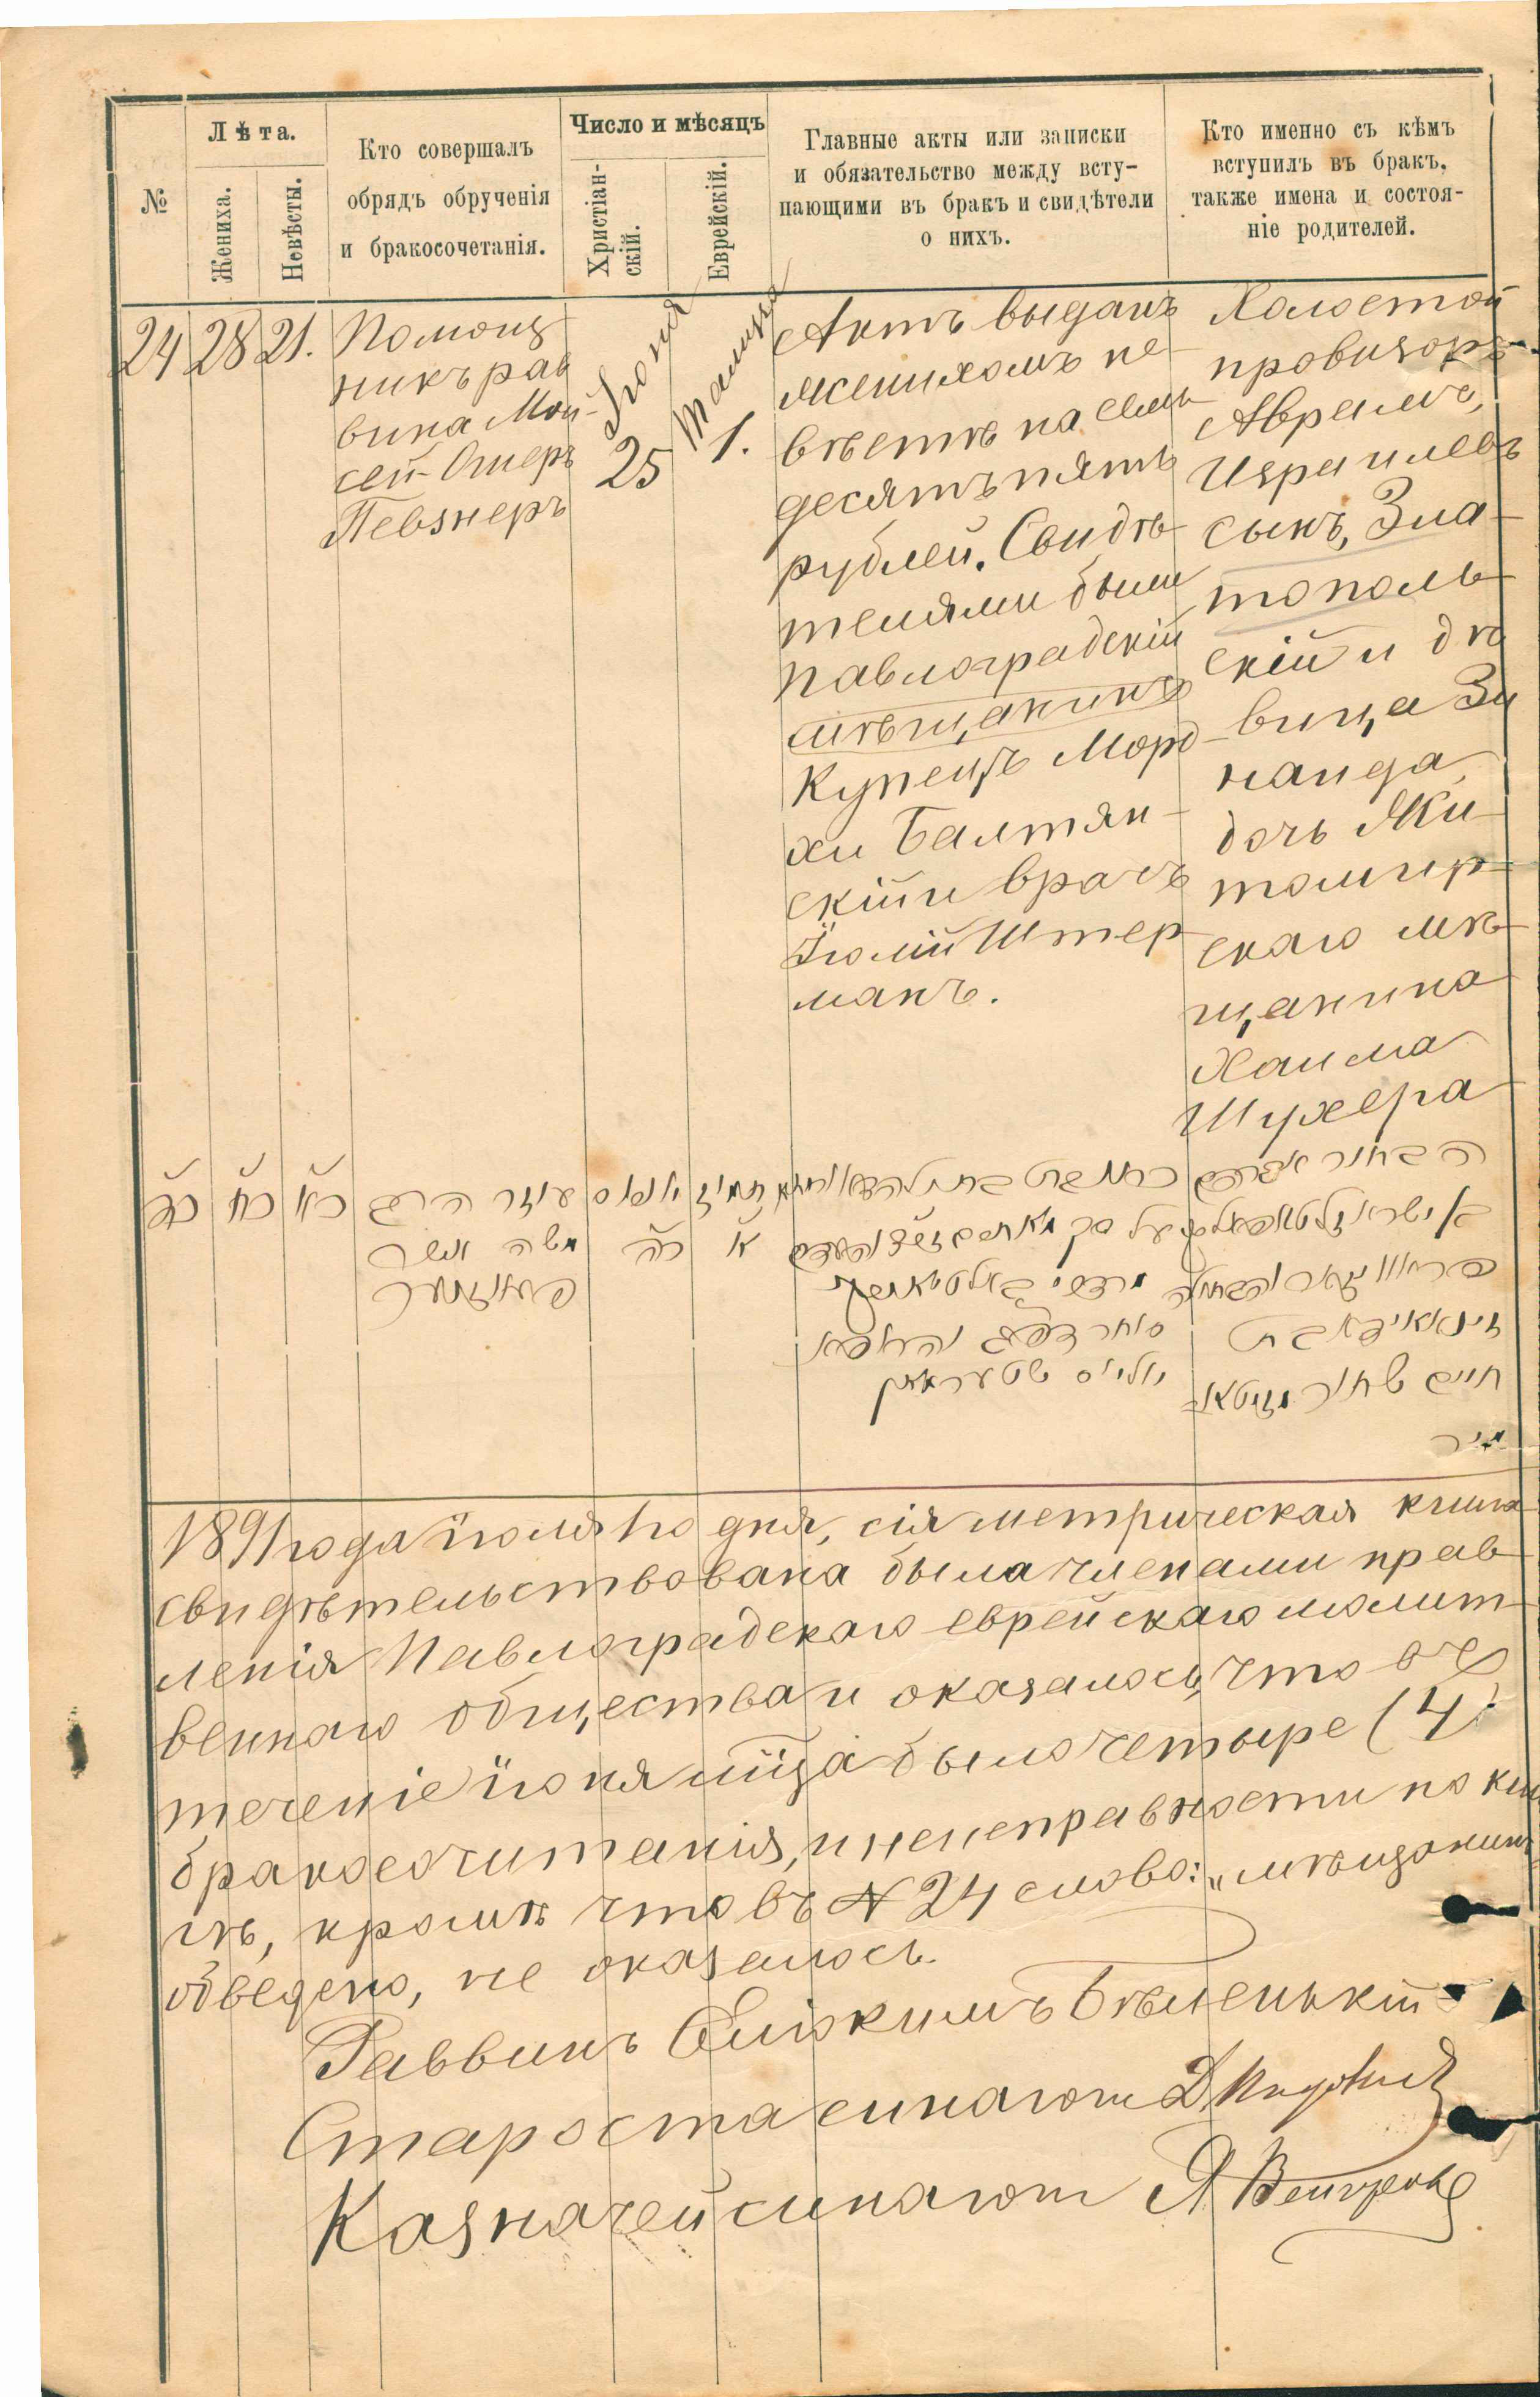 №
Лѣта.
Жениха.
Невѣсты.
Кто совершалъ
обрядъ обрученія
и бракосочетанія.
Число и мѣсяцъ
Христіан-
скій.
Еврейскій.
Главные акты или записки
и обязательство между всту-
пающими въ бракъ и свидѣтели
о нихъ.
Кто именно съ кѣмъ
вступилъ въ бракъ,
также имена и состоя-
ніе родителей.
24
28
21.
Помощ
никъ рав
вина Мои-
сей-Ошеръ
Певзнеръ
Іюня
25
Тамуза
1.
Актъ выданъ
женихомъ не-
вѣстѣ на семь
десятъ пять
рублей. Свидѣ-
телями были
Павлоградскій
мѣщанинъ
купецъ Морд-
хи Балтян-
скій и врачъ
Іюлій Штер
манъ.
Холостой
провизоръ
Аврамъ,
Израилевъ
сынъ, Зла-
тополь-
скій и дѣ
вица Зи
наида,
дочь Жи-
томир-
скаго мѣ-
щанина
Хаима
Шухера
כד
כח
כא
עוזר הרב
משה אשר
פעווזנער
יוניוס
כה
תמוז
א
מרדכי באלטיאנסקי
סוחר והרופא
יוליוס שטערמאן
הבחור אברהם
חיים שחור
1891 года іюля 1го дня, сія метрическая книга
свидѣтельствована была членами прав
ленія Павлоградскаго еврейскаго молит-
веннаго общества и оказалось, что въ
теченіе іюня мѣца было четыре (4)
бракосочитанія, и неисправности по кни
гѣ, кромѣ что въ № 24 слово: „мѣщанинъ
обведено, не оказалось.
Раввинъ Еліокимъ Бѣленькій
Староста синагоги Д
Казначей синагоги Я.